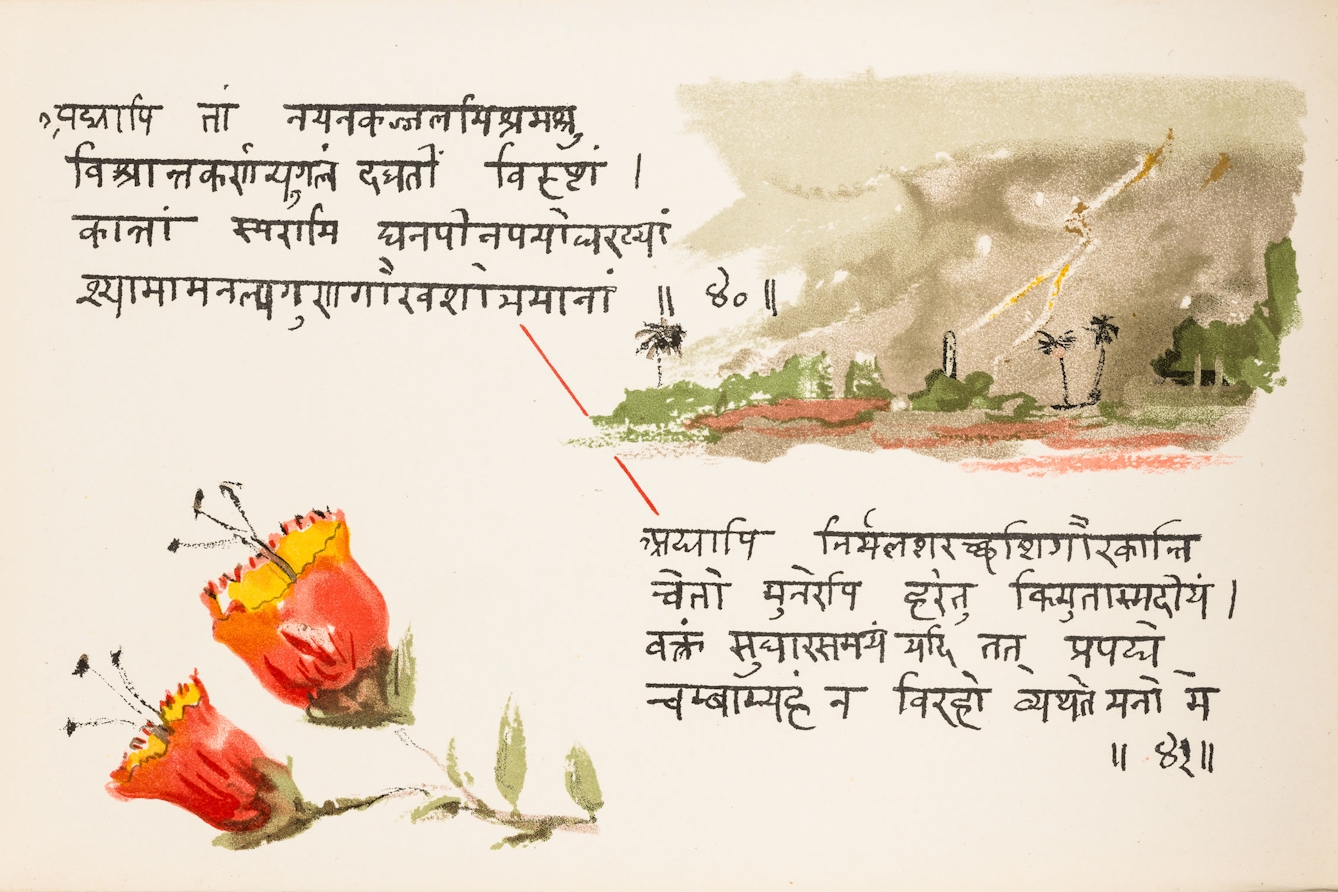 अद्यापि तां नयनकज्जलमिश्रमश्रु
विश्रान्तकर्णयुगलं दधतीं विसृष्टां ।
कान्तां स्मरामि घनपीनपयोधराभ्यां
श्यामामनल्पगुणगौरवशोभमानां ॥ ४० ॥
अद्यापि निर्मलशरच्छशिगौरकान्ति
चेतो मुनेरपि हरेत् किमुतास्मदीयं ।
वक्त्रं सुधारसमयं यदि तत् प्रपद्ये
चुम्बाम्यहं न विरहो व्यथते मनो मे
॥ ४१ ॥